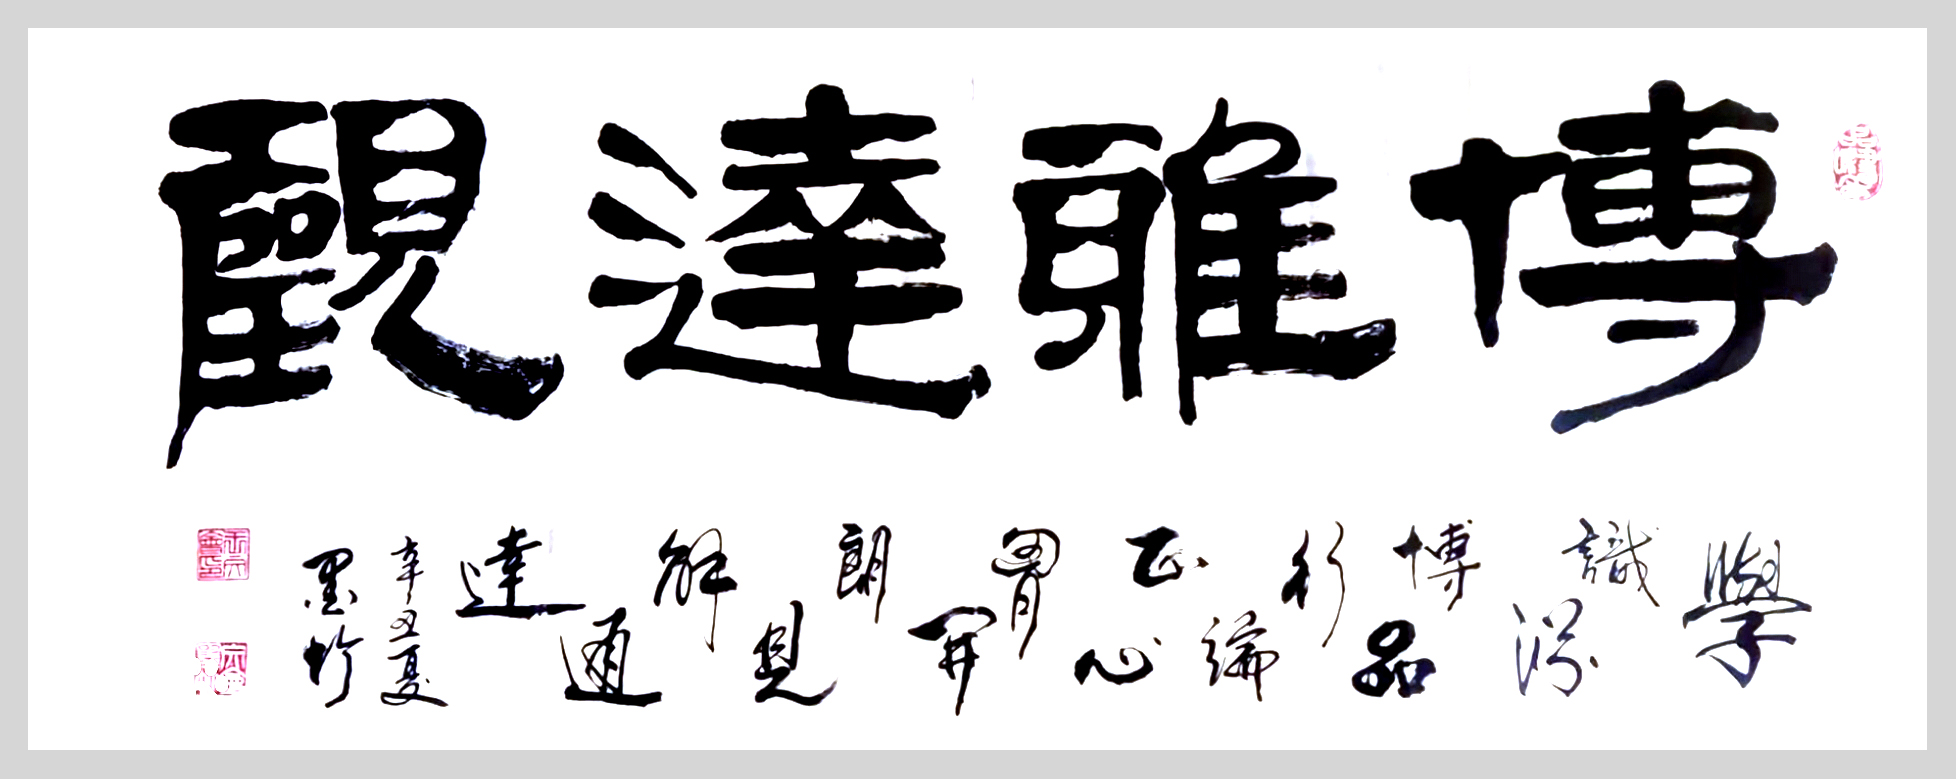 博雅達觀
學識渊博品行端正心胷開朗見解通達
辛丑夏
墨竹